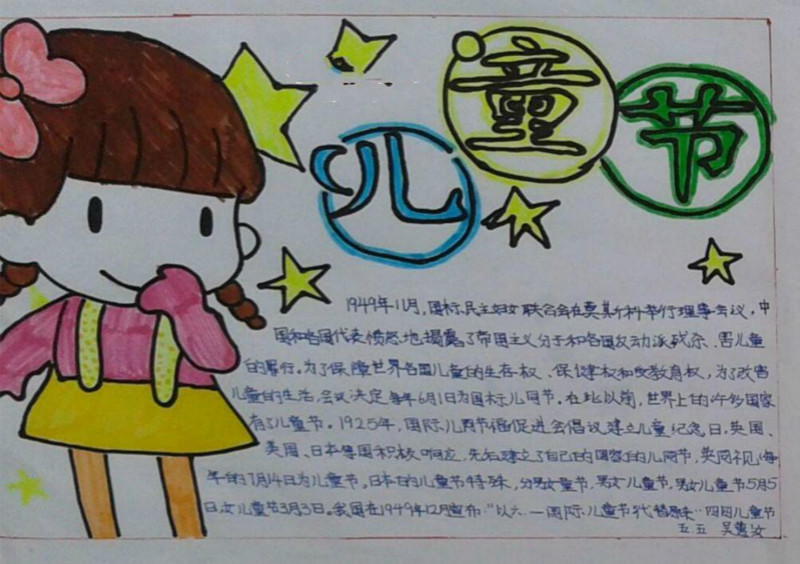 儿童节
1949年11月,国际民主妇女联合会在莫斯科举行理事会议,中
国和各国代表愤怒地揭露了帝国主义分子和各国反动派残杀、害儿童
的罪行。为了保障世界各国儿童的生存权、保健权和受教育权,为了改害
儿童的生活,会议决定每年6月1日为国际儿同节。在此以前,世界上的许多国家
有了儿童节。1925年,国际儿同节促进会倡议建立儿童纪念日,英国、
美国、日本等国积极响应,先后建立了自己的国家的儿同节,英同每
年的7月14日为儿童节。日本的儿童节特殊,分男女童节,男女儿童节,男儿童节5月5
日,女儿童节3月3日。我国在1949年12月宣布:"以六.一国际儿童节代替原来"四四儿童节
五.五 吴